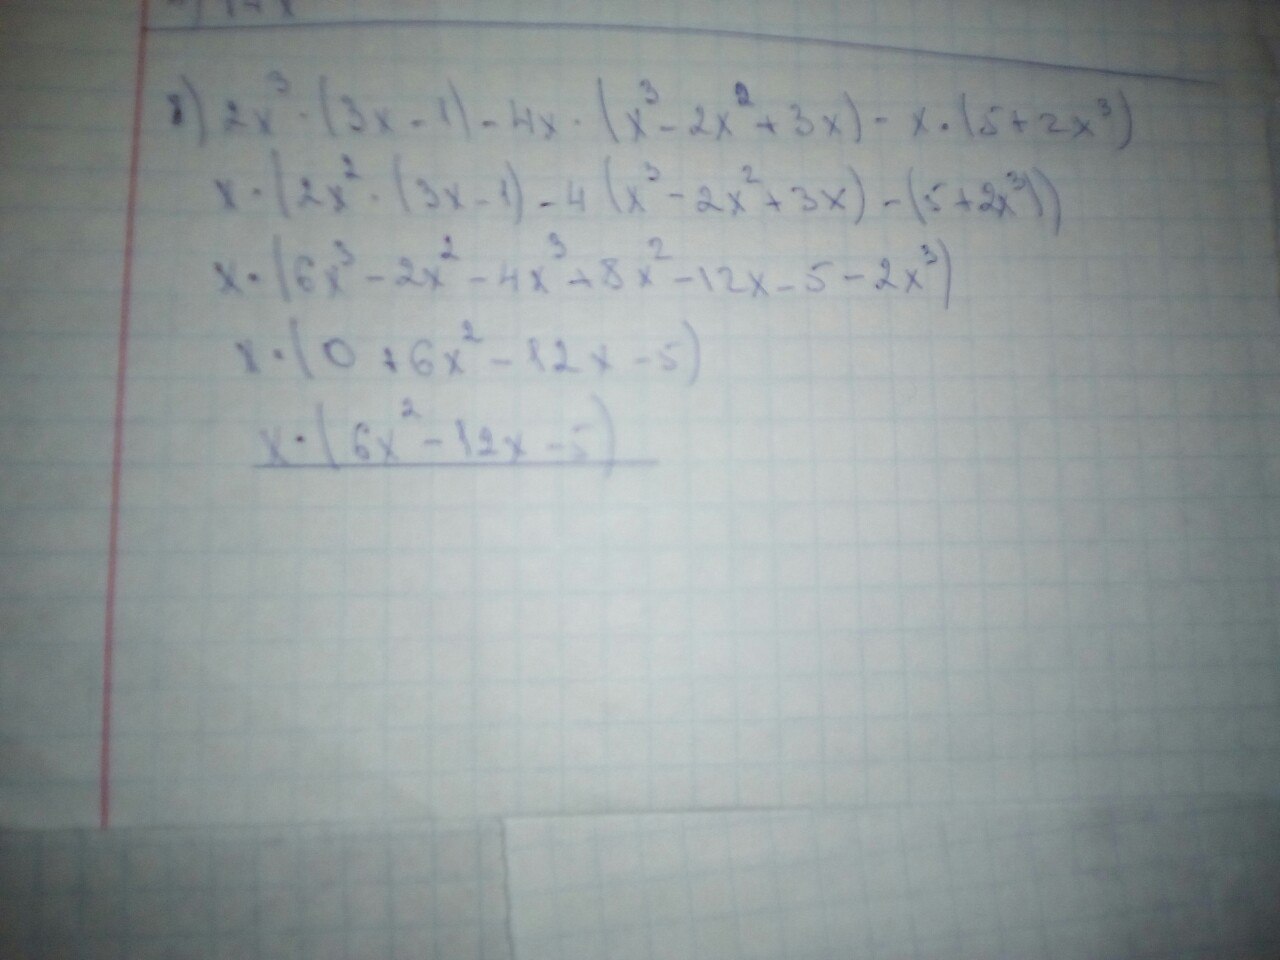 8) 2x³ · (3x - 1) - 4x · (x³ - 2x² + 3x) - x · (5 + 2x³)
x · (2x² · (3x - 1) - 4 (x³ - 2x² + 3x) - (5 + 2x³))
x · (6x³ - 2x² - 4x³ + 8x² - 12x - 5 - 2x³)
x · (0 + 6x² - 12x - 5)
x · (6x² - 12x - 5)